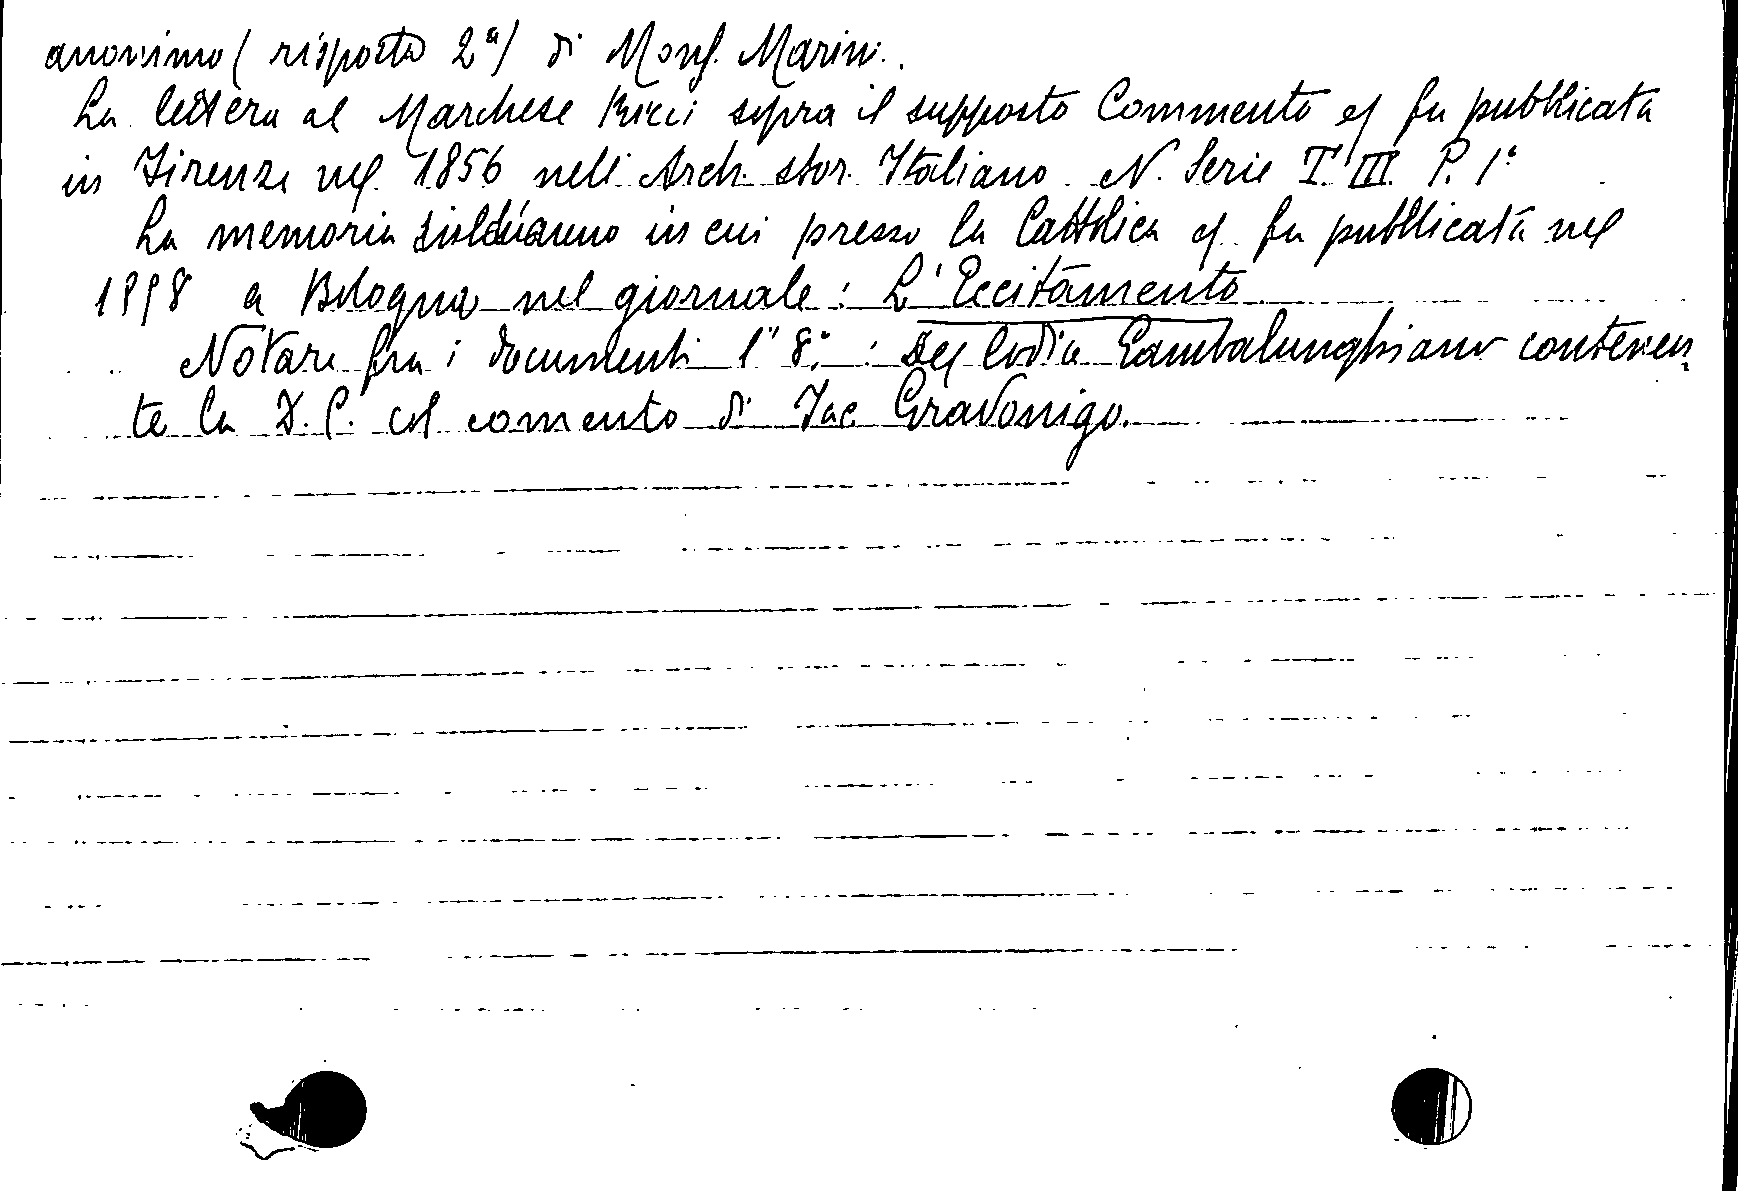 anonimo (risposta 2ª) di Mons. Marini.
La lettera al Marchese Ricci sopra il supposto Commento ef fu pubblicata
in Firenze nel 1856 nell' Arch. stor. Italiano N. Serie T. III. P. 1ª
La memoria in cui presso la Cattolica ef fu pubblicata nel
1858 a Bologna nel giornale: L'Eccitamento
Notare fra i documenti l' 8°: Del Codice Gambalunghiano contenen,
te la D. C. col comento di Jac. Gradonigo.